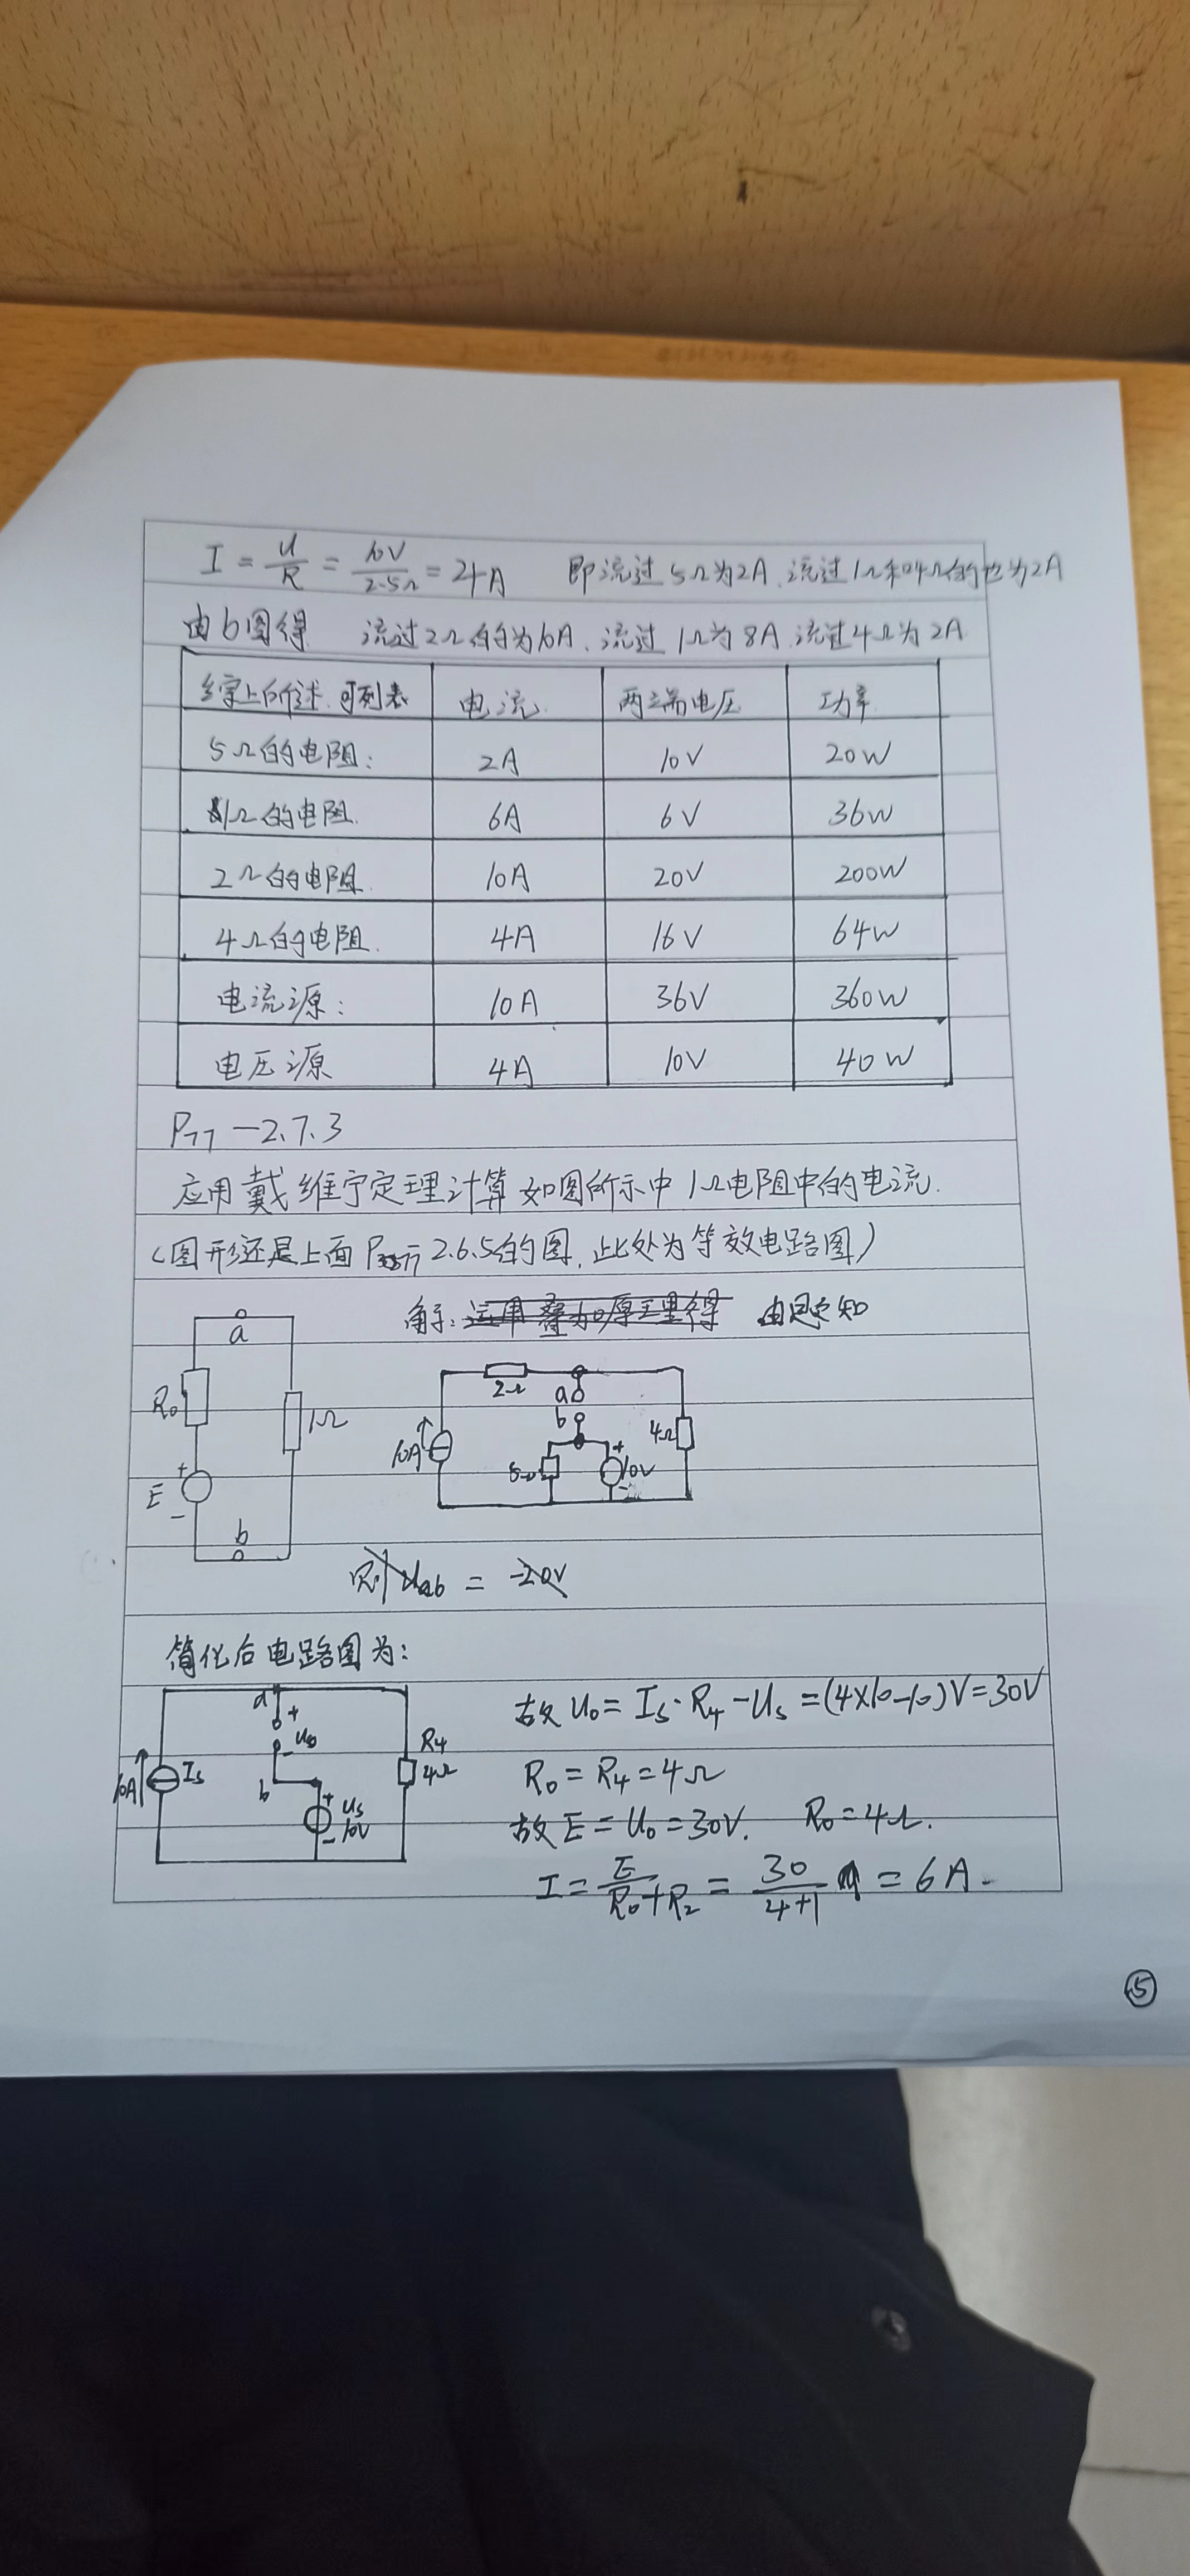 I = U/R = 10V/2.5Ω = 4A 即流过5Ω为2A.流过1Ω和4Ω的也为2A
由b图得 流过2Ω的为10A、流过1Ω为8A.流过4Ω为2A
综上所述.可列表 电流 两端电压 功率
5Ω的电阻: 2A 10V 20W
1Ω的电阻. 6A 6V 36W
2Ω的电阻. 10A 20V 200W
4Ω的电阻. 4A 16V 64W
电流源: 10A 36V 360W
电压源 4A 10V 40W
P77 -2.7.3
应用戴维宁定理计算如图所示中1Ω电阻中的电流.
(图形还是上面 2.6.5的图,此处为等效电路图)
解: 运用叠加原理得 由图知
a
R0 1Ω
+ E -
b
2Ω a
b 4Ω
10A 5Ω + 10V -
则Uab = -20V
简化后电路图为:
a + U0 - b
10A IS + US 10V - R4 4Ω
故U0 = IS·R4 - US = (4×10-10)V = 30V
R0 = R4 = 4Ω
故E = U0 = 30V. R0 = 4Ω.
I = E/(R0+R2) = 30/(4+1) = 6A.
⑤